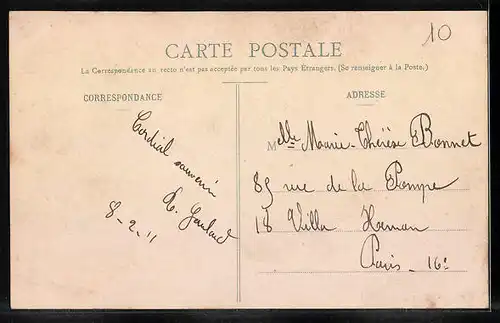 10
CARTE POSTALE
La Correspondance au recto n'est pas acceptée par tous les Pays Etrangers. (Se renseigner à la Poste.)
CORRESPONDANCE
Cordial souvenir
8-2-11
ADRESSE
Melle Marie-Thérèse Bonnet
85 rue de la Pompe
18 Villa
Paris-16e